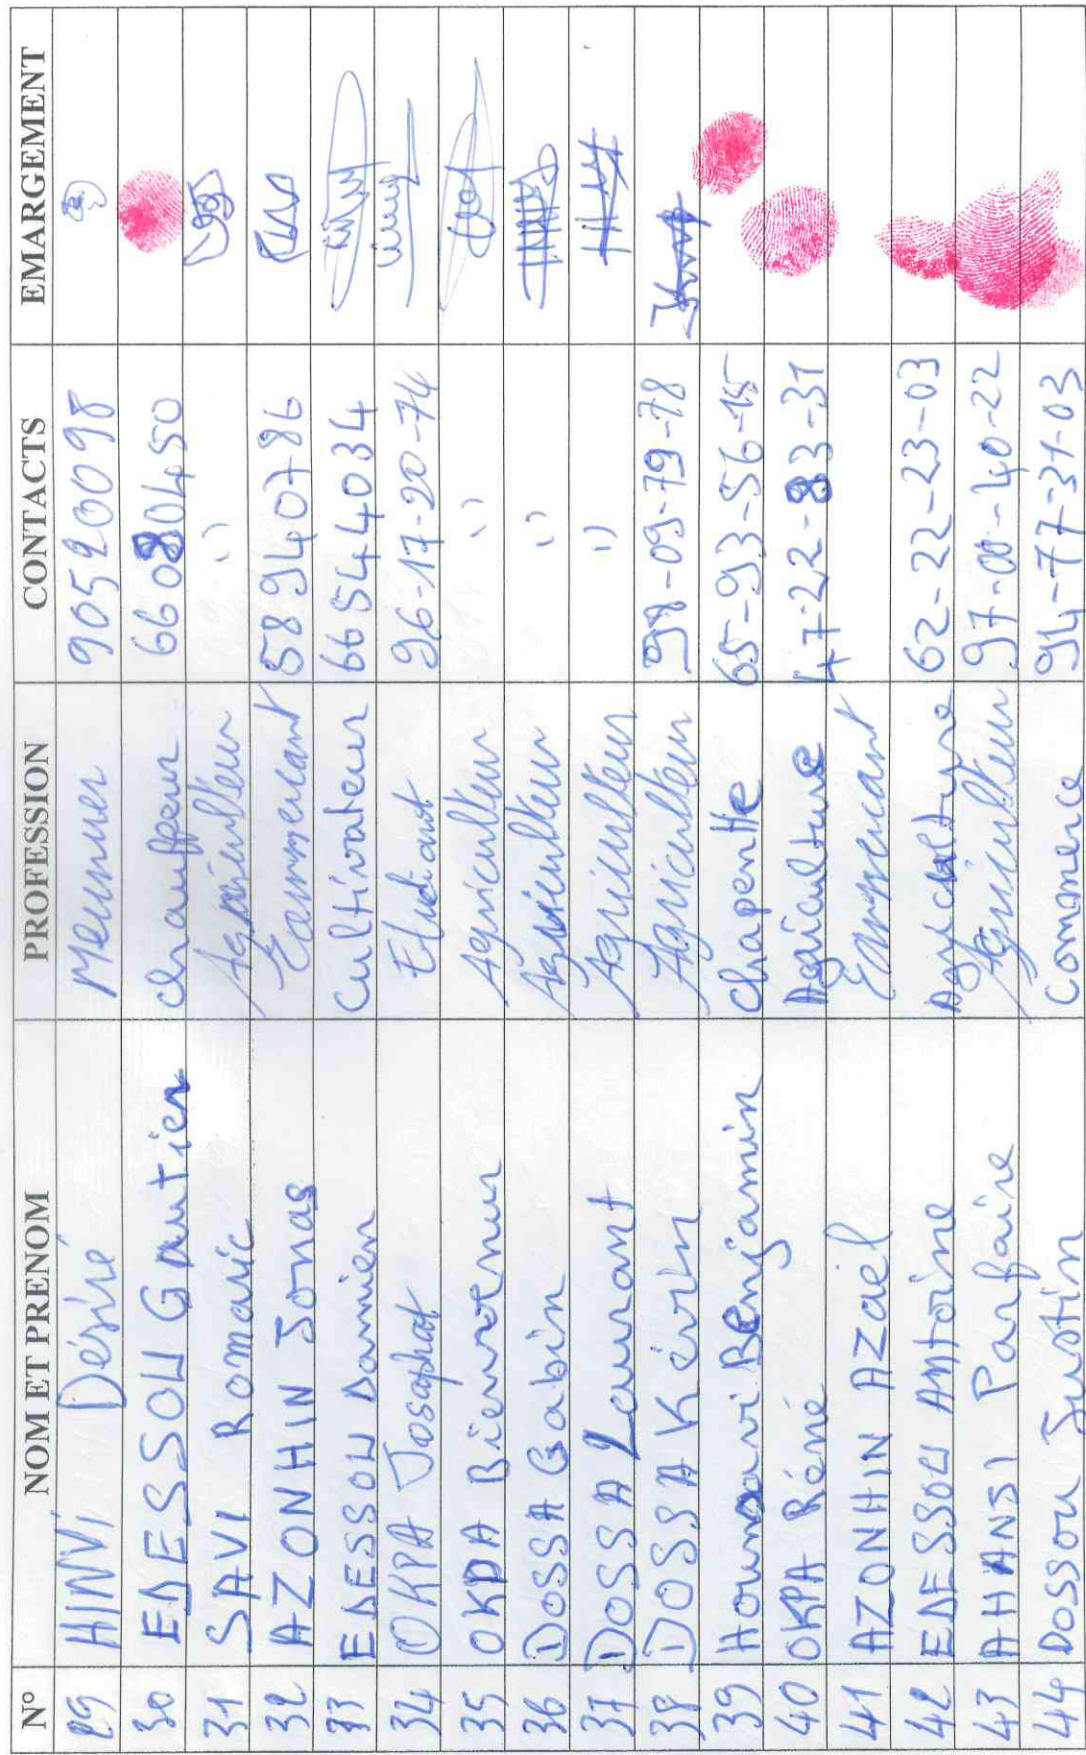 N° NOM ET PRENOM PROFESSION CONTACTS EMARGEMENT
29 HINVI Désiré Meunier 90520098
30 EDESSOU Gautier chauffeur 66080450
31 SAVI Romaric Agriculteur ''
32 AZONHIN Jonas Commercant 58940786
33 EDESSOU Damien Cultivateur 66544034
34 OKPA Josaphat Etudiant 96-17-20-74
35 OKPA Bienvenu Agriculteur ''
36 DOSSA Gabin Agriculteur ''
37 DOSSA Laurant Agriculteur ''
38 DOSSA Kévin Agriculteur 98-09-79-78
39 Hounsavi Benjamin Chapente 65-93-56-15
40 OKPA Réné Agriculture 47-22-83-31
41 AZONHIN AZaël Commercant
42 EDESSOU Antoine Agriculture 62-22-23-03
43 AHANSI Parfaire Agriculteur 97-00-40-22
44 Dossou Justin Commerce 94-77-31-03